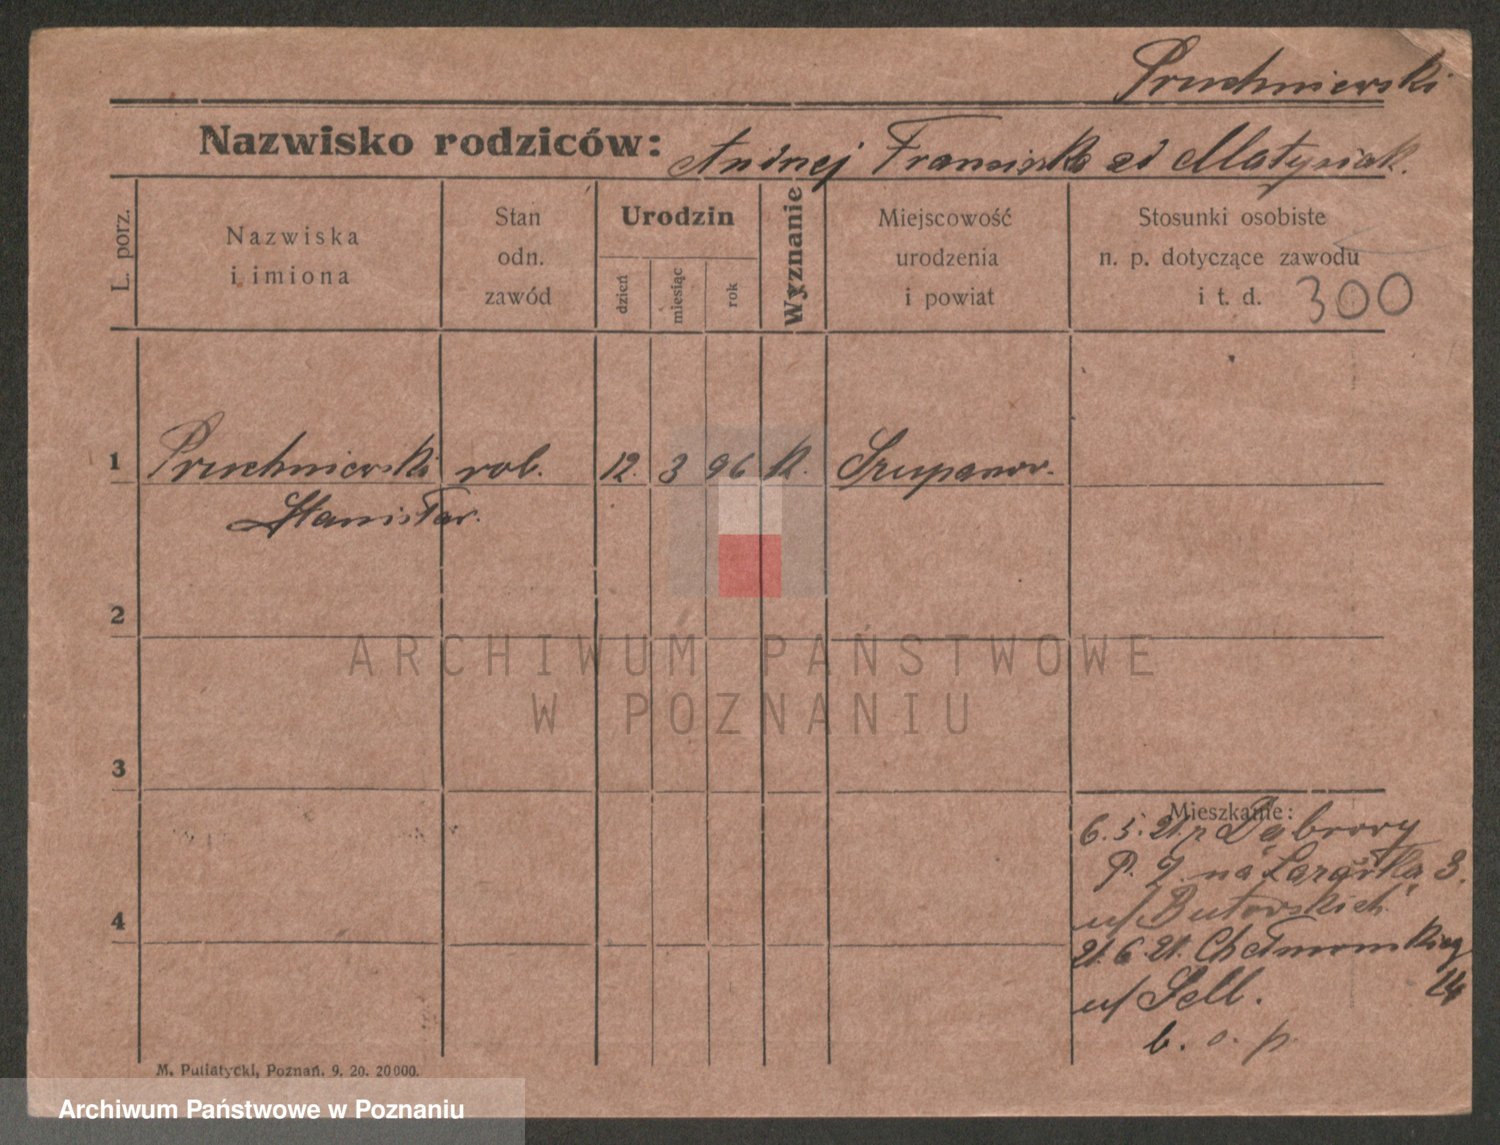 Pruchniewski
Nazwisko rodziców: Andrzej Franciszka zd Matysiak.
L. porz.
Nazwiska
i imiona
Stan
odn.
zawód
Urodzin
dzień
miesiąc
rok
Wyznanie
Miejscowość
urodzenia
i powiat
Stosunki osobiste
n. p. dotyczące zawodu
i t. d.
300
1 Pruchniewski rob. 12. 3 96 k. Szupanow.
Stanisław.
2
3
4
Mieszkanie:
6. 5. 21. z Dąbrowy
P. J. na Łazarska 3.
u/ Butowskich
21. 6. 21. Chełmońskieg
24
u/ Sell.
b. o. p.
M. Putiatycki, Poznań. 9. 20. 20000.
ARCHIWUM PAŃSTWOWE
W POZNANIU
Archiwum Państwowe w Poznaniu